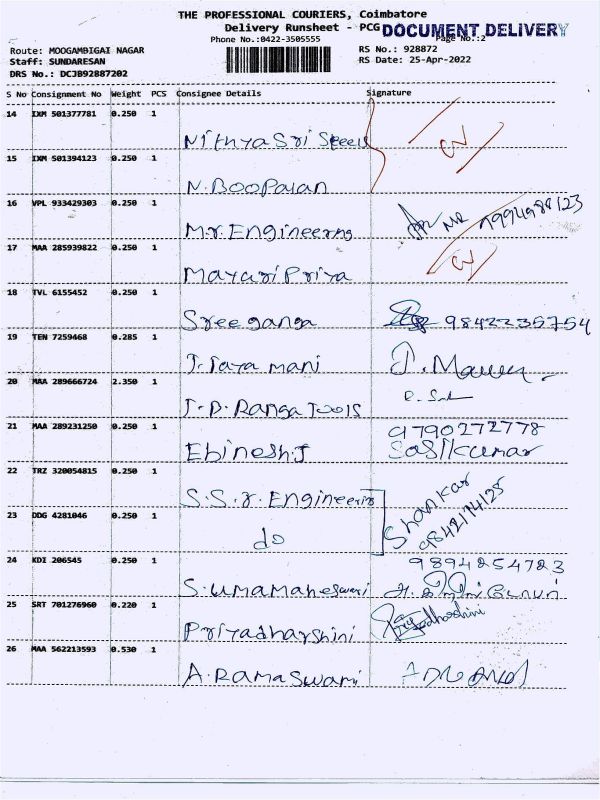 THE PROFESSIONAL COURIERS, Coimbatore
Delivery Runsheet - PCG DOCUMENT DELIVERY
Phone No.:0422-3505555 Page No.:2
Route: MOOGAMBIGAI NAGAR RS No.: 928872
Staff: SUNDARESAN RS Date: 25-Apr-2022
DRS No.: DCJB92887202
S No Consignment No Weight PCS Consignee Details Signature
14 IXM 501377781 0.250 1
Nithya Sri Steels
15 IXM 501394123 0.250 1
N. BOOPalan
16 VPL 933429303 0.250 1
M.r. Engineering
17 MAA 285939822 0.250 1
Mayuri Priya
18 TVL 6155452 0.250 1
Sree ganga 9842235754
19 TEN 7259468 0.285 1
J. Jaya mani
20 MAA 289666724 2.350 1
J.D. Ranga Tools
21 MAA 289231250 0.250 1 9790272778
Ebinesh.J Sasikumar
22 TRZ 320054815 0.250 1
S.S.r. Engineering Shankar
23 DDG 4281046 0.250 1 9842174125
do
24 KDI 206545 0.250 1 9894254723
S. umamaheswari
25 SRT 701276960 0.220 1
Priyadharshini Priyadharshini
26 MAA 562213593 0.530 1
A. Ramaswami